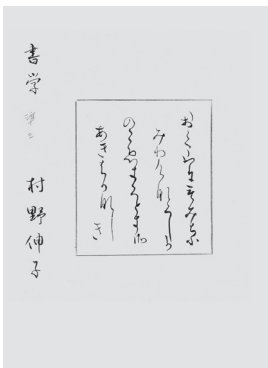 おくやまにもみちふ
みわけなくしか
のこゑきくときそ
あきはかなし
き
書学 村野伸子